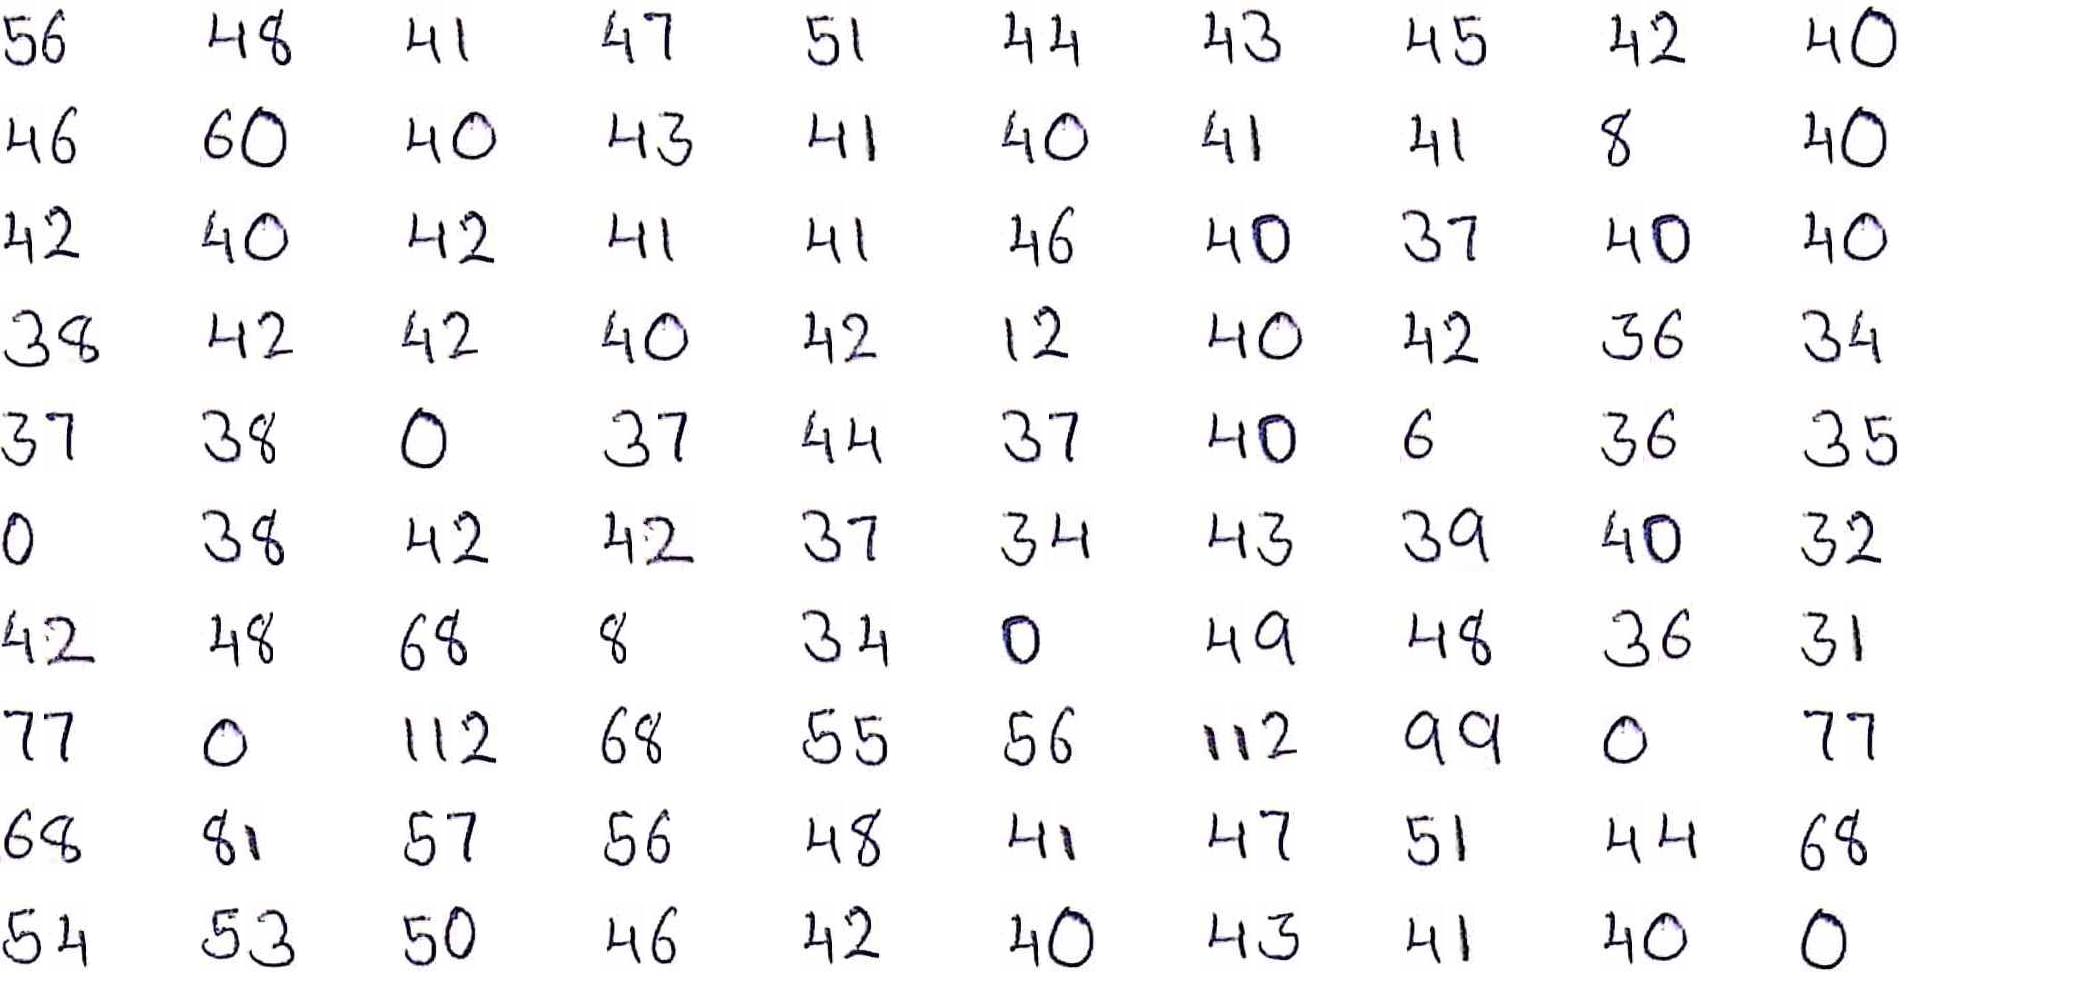 56 48 41 47 51 44 43 45 42 40
46 60 40 43 41 40 41 41 8 40
42 40 42 41 41 46 40 37 40 40
38 42 42 40 42 12 40 42 36 34
37 38 0 37 44 37 40 6 36 35
0 38 42 42 37 34 43 39 40 32
42 48 68 8 34 0 49 48 36 31
77 0 112 68 55 56 112 99 0 77
68 81 57 56 48 41 47 51 44 68
54 53 50 46 42 40 43 41 40 0